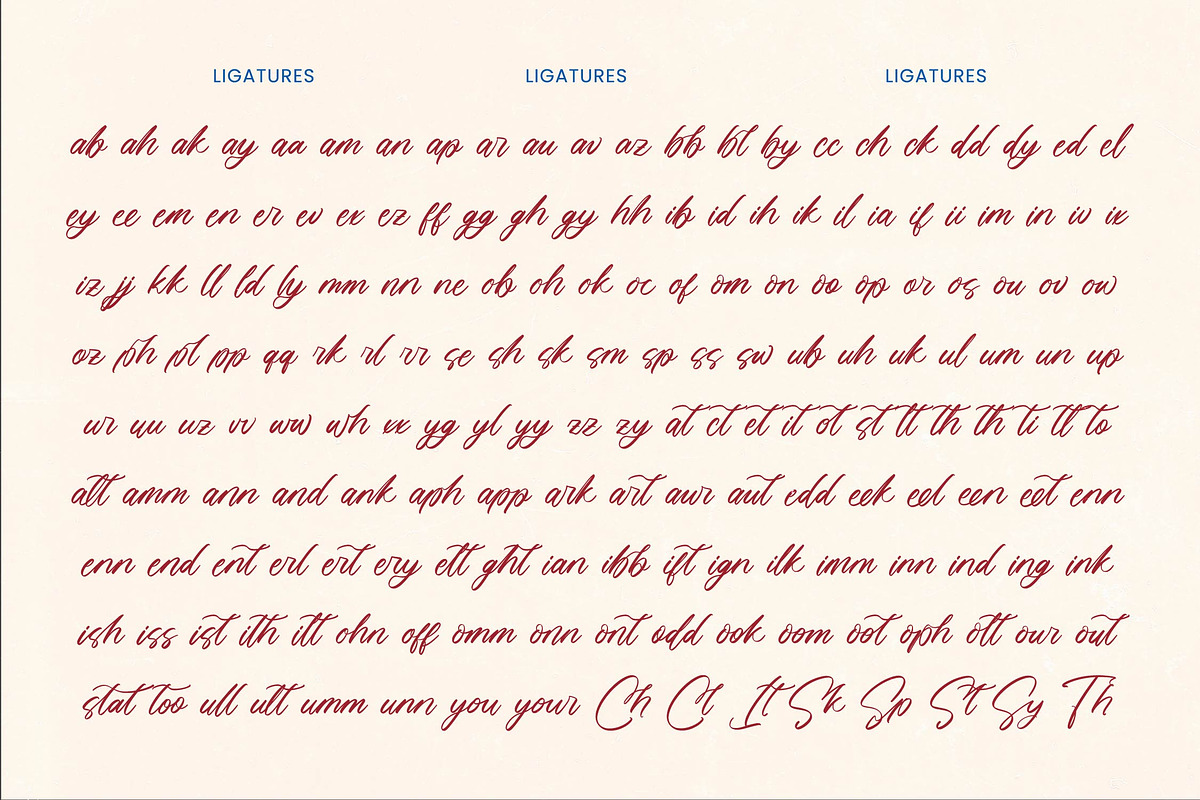 LIGATURES LIGATURES LIGATURES
ab ah ak ay aa am an ap ar au av az bb bl by cc ch ck dd dy ed el
ey ee em en er ev ex ez ff gg gh gy hh ib id ih ik il ia if ii im in iv ix
iz jj kk ll ld ly mm nn ne ob oh ok oc of om on oo op or os ou ov ow
oz ph pl pp qq rk rl rr se sh sk sm sp ss sw ub uh uk ul um un up
ur uu uz vv ww wh xx yg yl yy zz zy at ct et it ot st tt th th ti tl to
att amm ann and ank aph app ark art aur aut edd eek eel een eet enn
enn end ent erl ert ery ett ght ian ibb ift ign ilk imm inn ind ing ink
ish iss ist ith itt ohn off omm onn ont odd ook oom oot oph ott our out
stat too ull utt umm unn you your Ch Cl It Sk Sp St Sy Th